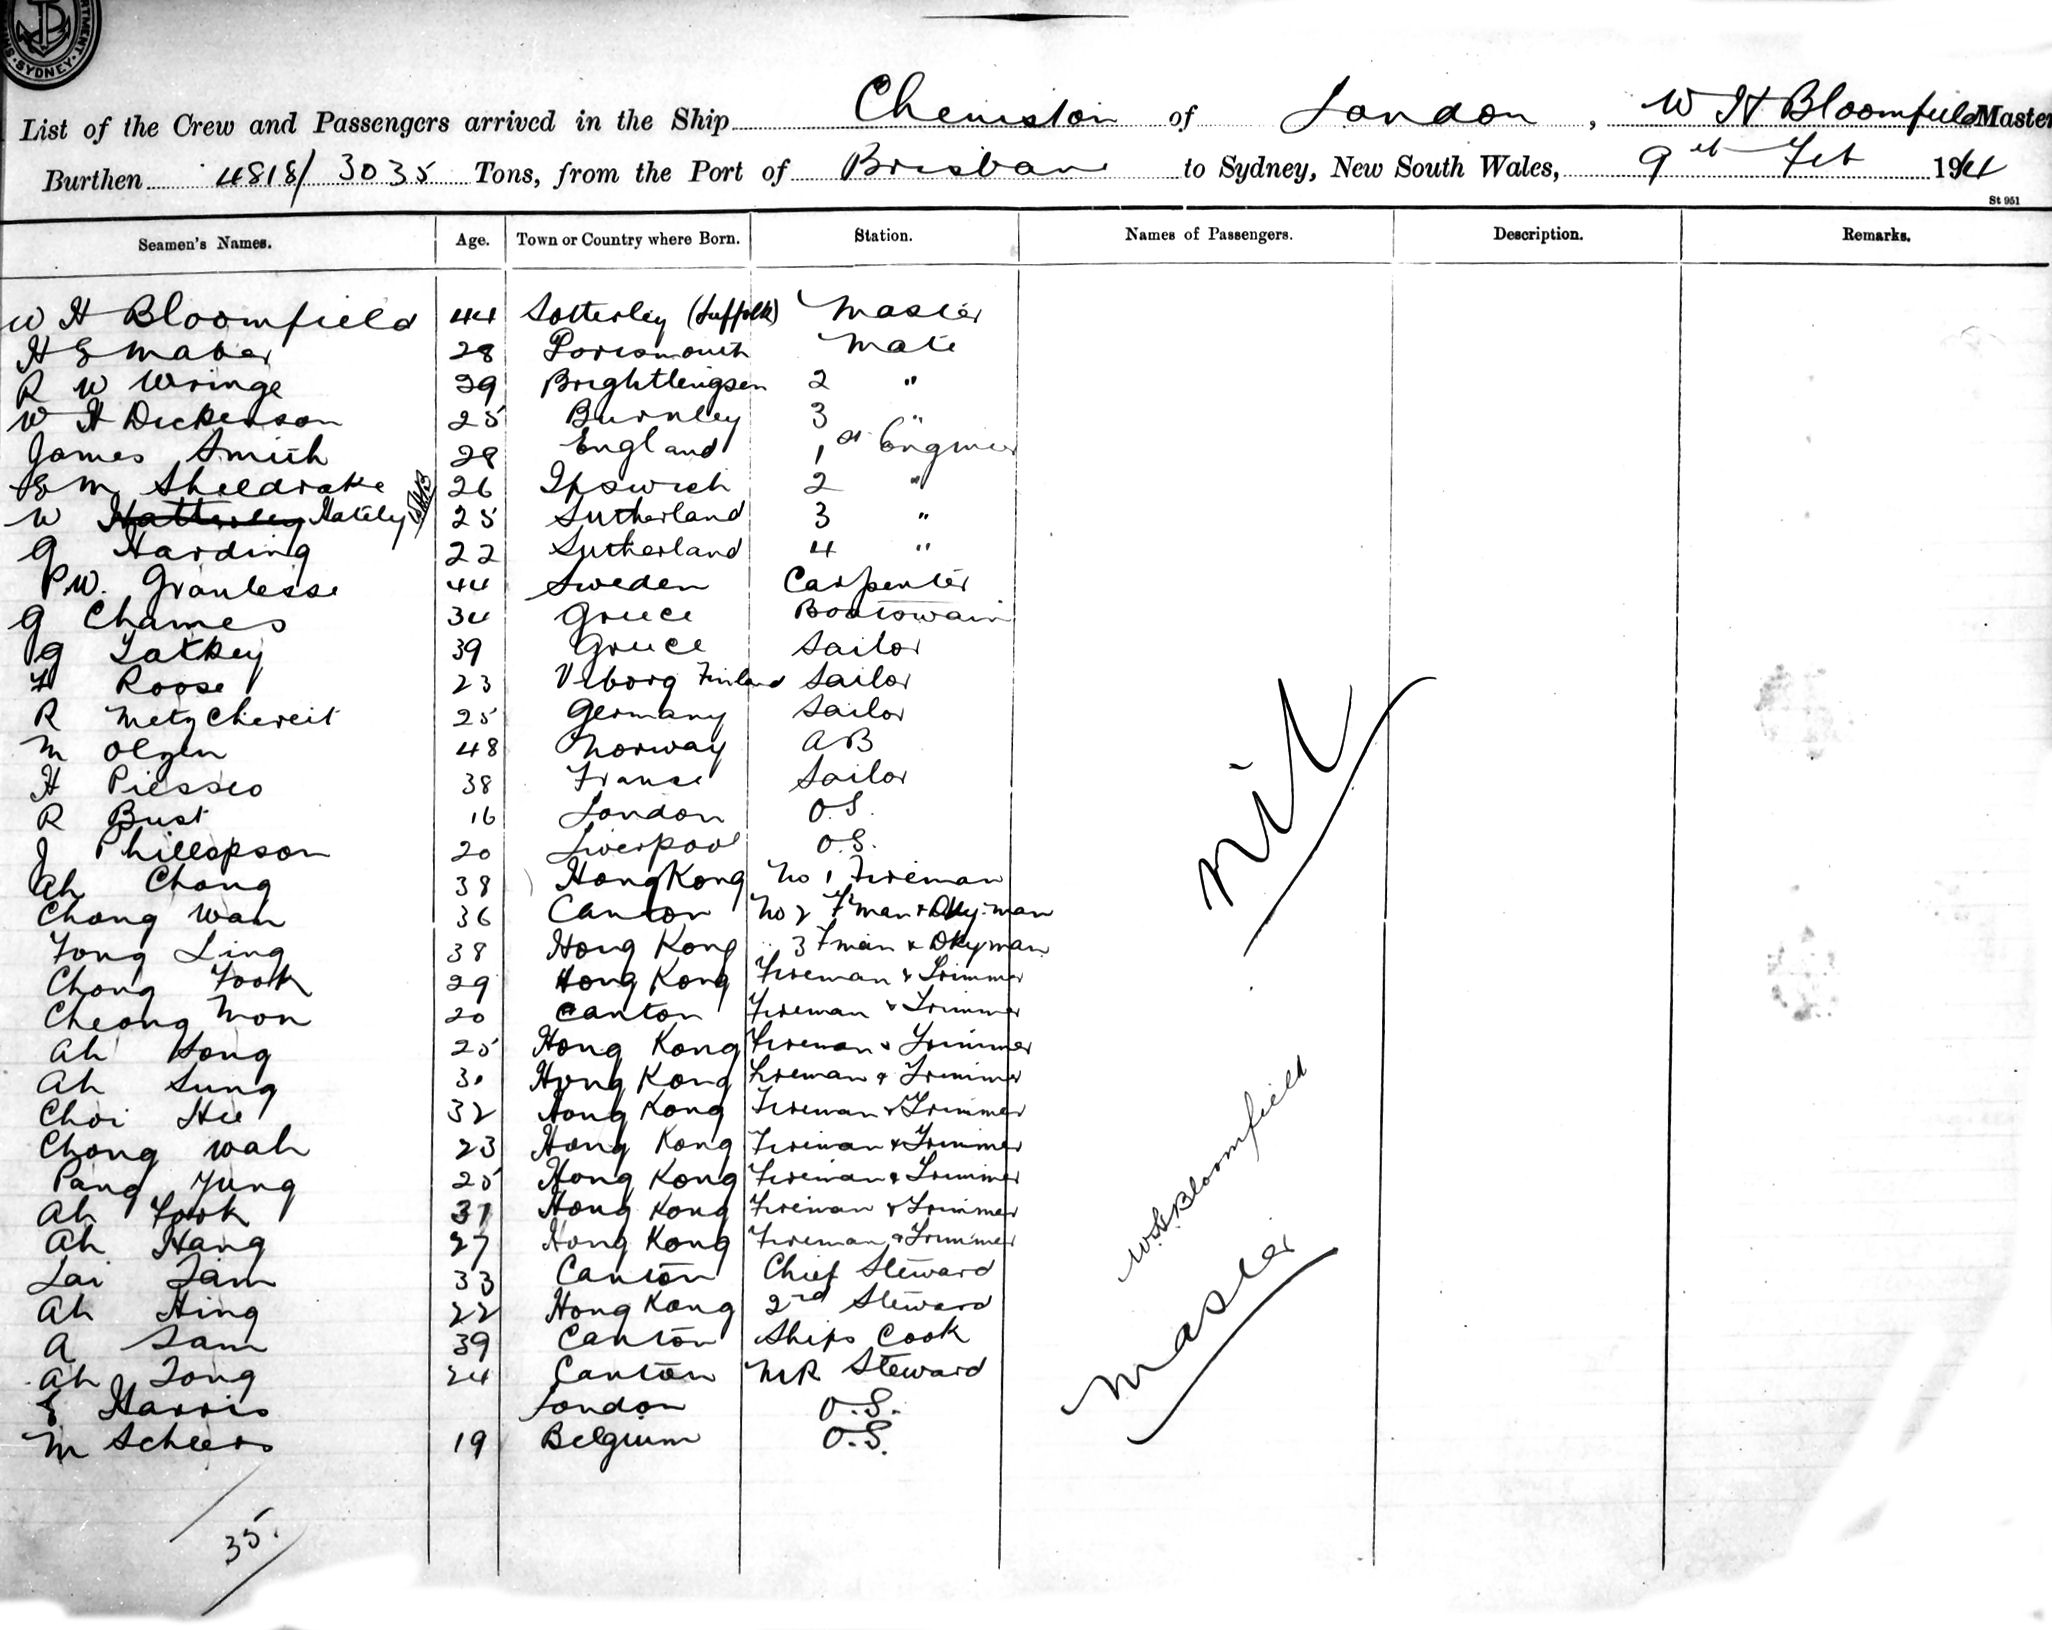 SYDNEY
List of the Crew and Passengers arrived in the Ship Cheniston of London, W H Bloomfield Master
Burthen 4818/3035 Tons, from the Port of Brisbane to Sydney, New South Wales, 9th Feb 1914
St 951
Seamen's Names. Age. Town or Country where Born. Station. Names of Passengers. Description. Remarks.
W H Bloomfield 44 Sotterley (Suffolk) Master
H G Maber 28 Portsmouth Mate
R W Wringe 29 Brightlingsen 2 "
W H Dickenson 25 Burnley 3 "
James Smith 28 England 1st Engineer
E M Sheldrake 26 Ipswich 2 "
W Hatterley Hately WHB 25 Sutherland 3 "
G Harding 22 Sutherland 4 "
P W. Granlesse 44 Sweden Carpenter
G Chames 34 Greece Boatswain
G Latkey 39 Greece Sailor
F Roose 23 Viborg Finland Sailor
R Metzchereit 25 Germany Sailor
M Olzen 48 Norway AB
H Piesseo 38 France Sailor
R Bust 16 London O.S.
J Phillopson 20 Liverpool O.S.
Ah Chong 38 Hong Kong No 1 Fireman
Chong Wan 36 Canton No 2 F'man & Dky-man
Fong Ling 38 Hong Kong 3 Fman & Dkyman
Chong Fook 29 Hong Kong Fireman & Trimmer
Cheong Mon 20 Canton Fireman & Trimmer
Ah Song 25 Hong Kong Fireman & Trimmer
Ah Sung 30 Hong Kong Fireman & Trimmer
Choi Hee 32 Hong Kong Fireman & Trimmer
Chong Wah 23 Hong Kong Fireman & Trimmer
Pang Yung 25 Hong Kong Fireman & Trimmer
Ah Fook 31 Hong Kong Fireman & Trimmer
Ah Hang 27 Hong Kong Fireman & Trimmer
Lai Tam 33 Canton Chief Steward
Ah Hing 22 Hong Kong 2nd Steward
A Sam 39 Canton Ships Cook
Ah Tong 24 Canton MR Steward
E Harris London O.S.
M Scheers 19 Belgium O.S.
35.
nil
W.H. Bloomfield
Master